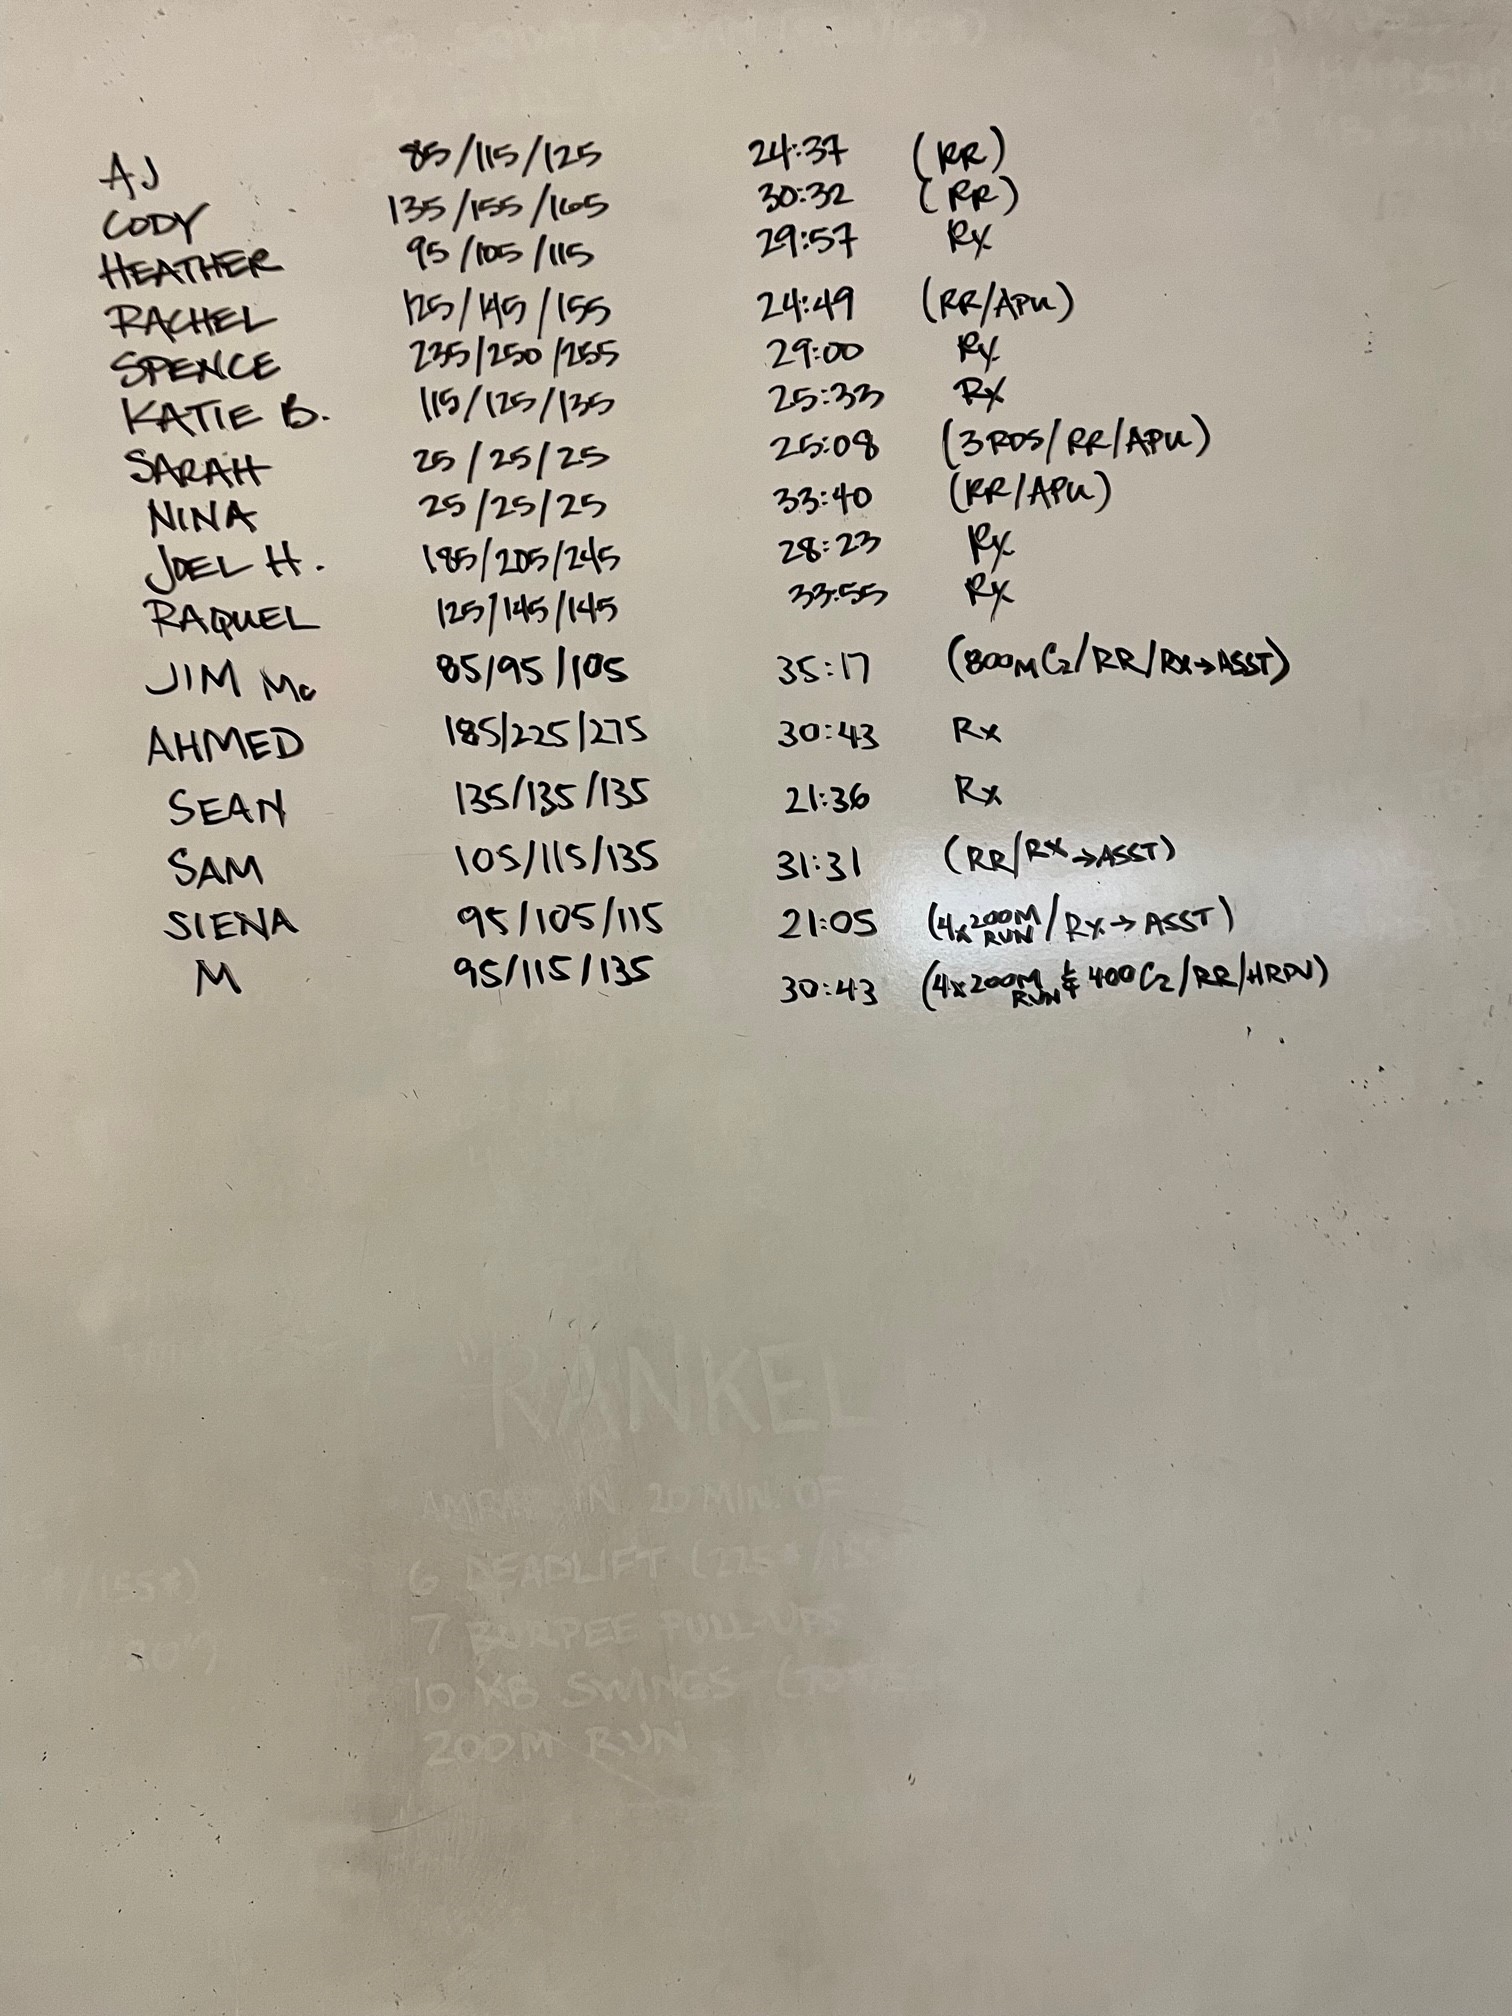 AJ 85/115/125 24:37 (RR)
CODY 135/155/165 30:32 (RR)
HEATHER 95/105/115 29:57 Rx
RACHEL 125/145/155 24:49 (RR/APU)
SPENCE 235/250/255 29:00 Rx
KATIE B. 115/125/135 25:33 Rx
SARAH 25/25/25 25:08 (3 RDS/RR/APU)
NINA 25/25/25 33:40 (RR/APU)
JOEL H. 185/205/245 28:23 Rx
RAQUEL 125/145/145 33:55 Rx
JIM Mc 85/95/105 35:17 (800M C2/RR/RX→ASST)
AHMED 185/225/275 30:43 Rx
SEAN 135/135/135 21:36 Rx
SAM 105/115/135 31:31 (RR/RX→ASST)
SIENA 95/105/115 21:05 (4x200M RUN/RX→ASST)
M 95/115/135 30:43 (4x200M RUN & 400 C2/RR/HRPU)
"RANKEL"
AMRAP IN 20 MIN. OF
6 DEADLIFT (225#/155
7 BURPEE PULL-UPS
10 KB SWINGS
200M RUN
/155#)
30")